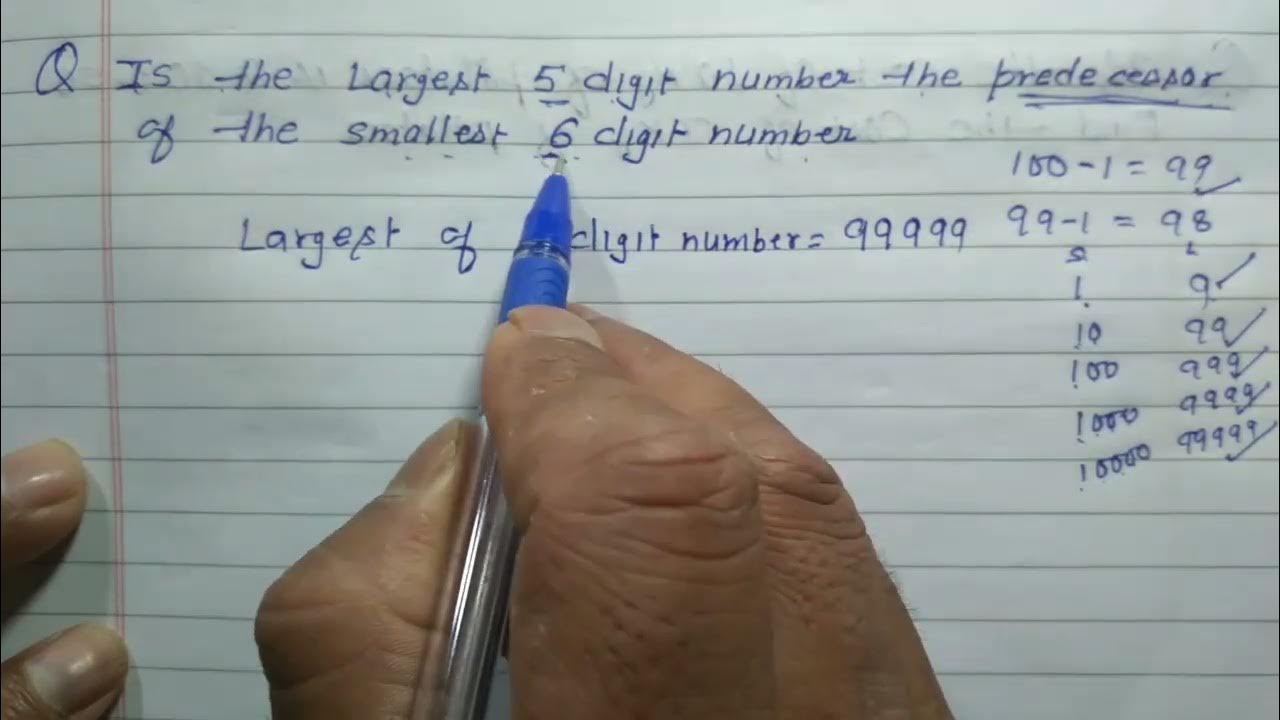 Q Is the Largest 5 digit number the predecessor
of the smallest 6 digit number
100 - 1 = 99
Largest of digit number = 99999
99 - 1 = 98
S L
1 9
10 99
100 999
1000 9999
10000 99999